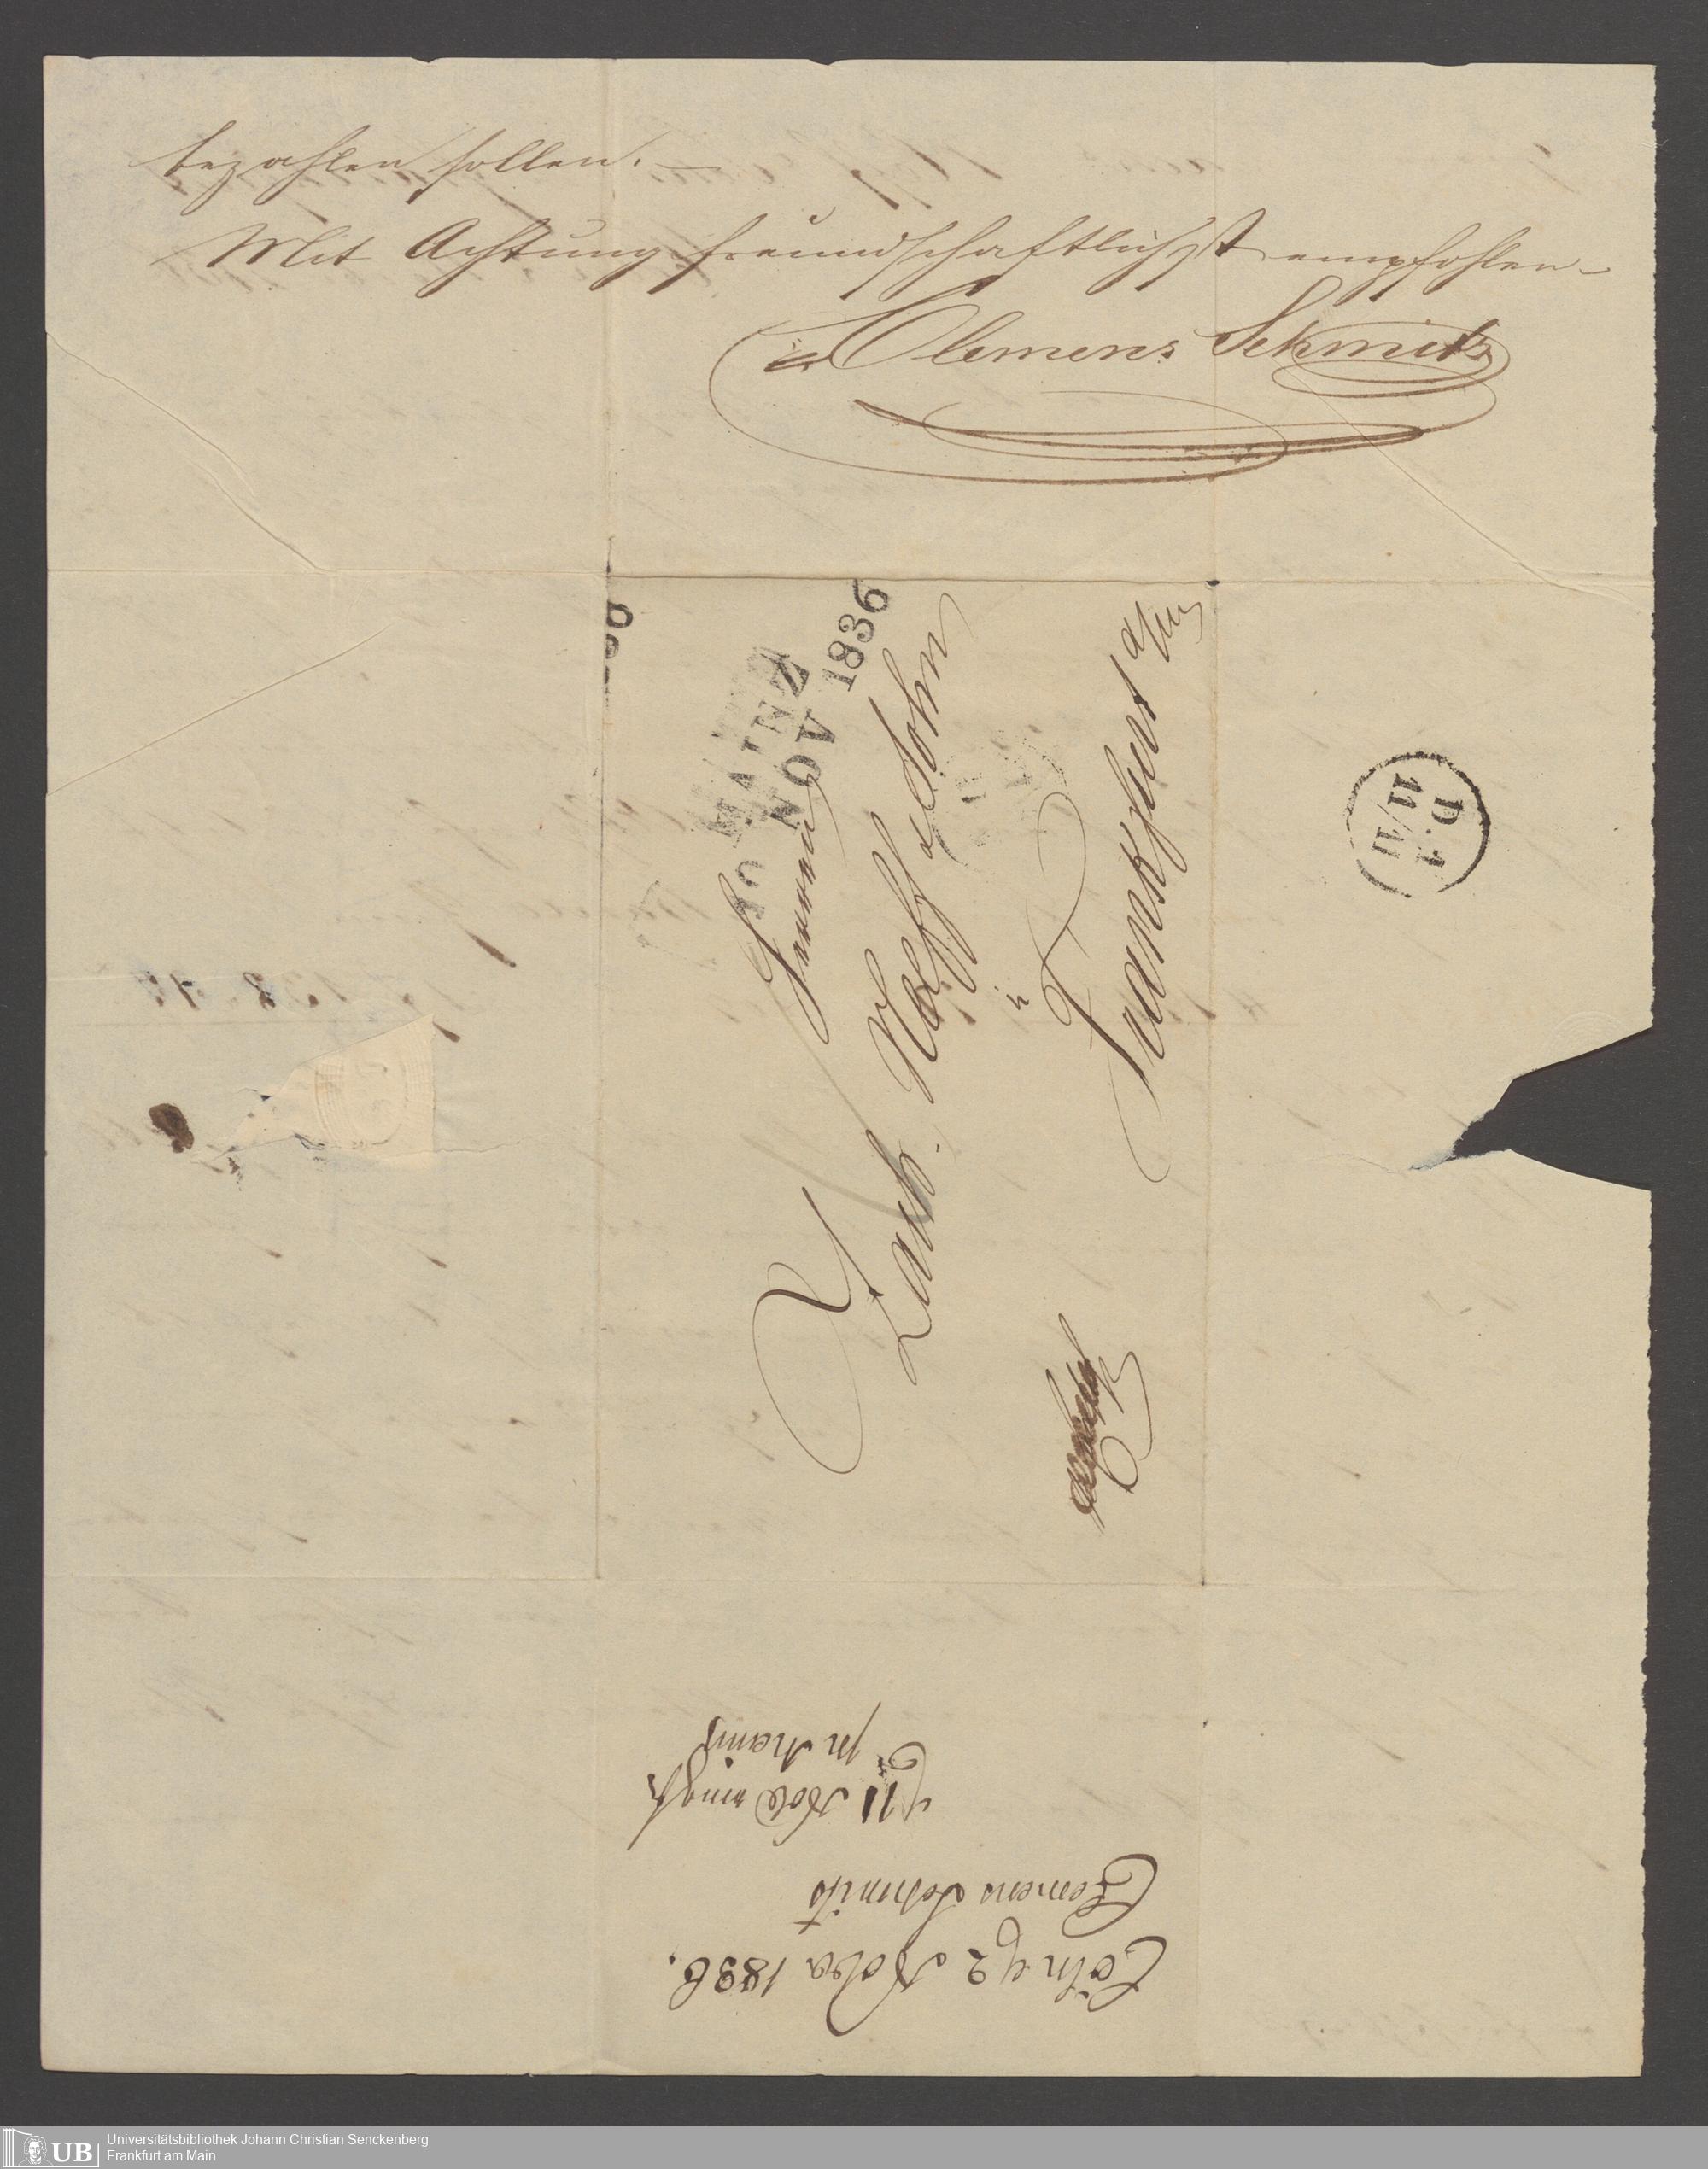 bezahlen sollen. —
Mit Achtung freundschaftlichst empfohlen
Clemens Schmitz
MAINZ
10 NOV 1836
Herren
Zach. Roeff & Sohn
in
Frankfurt a/m
D. 1
11/11
Cöln 92 Nober 1836.
Clemens Schmitz
11 Nober
Universitätsbibliothek Johann Christian Senckenberg
Frankfurt am Main
UB